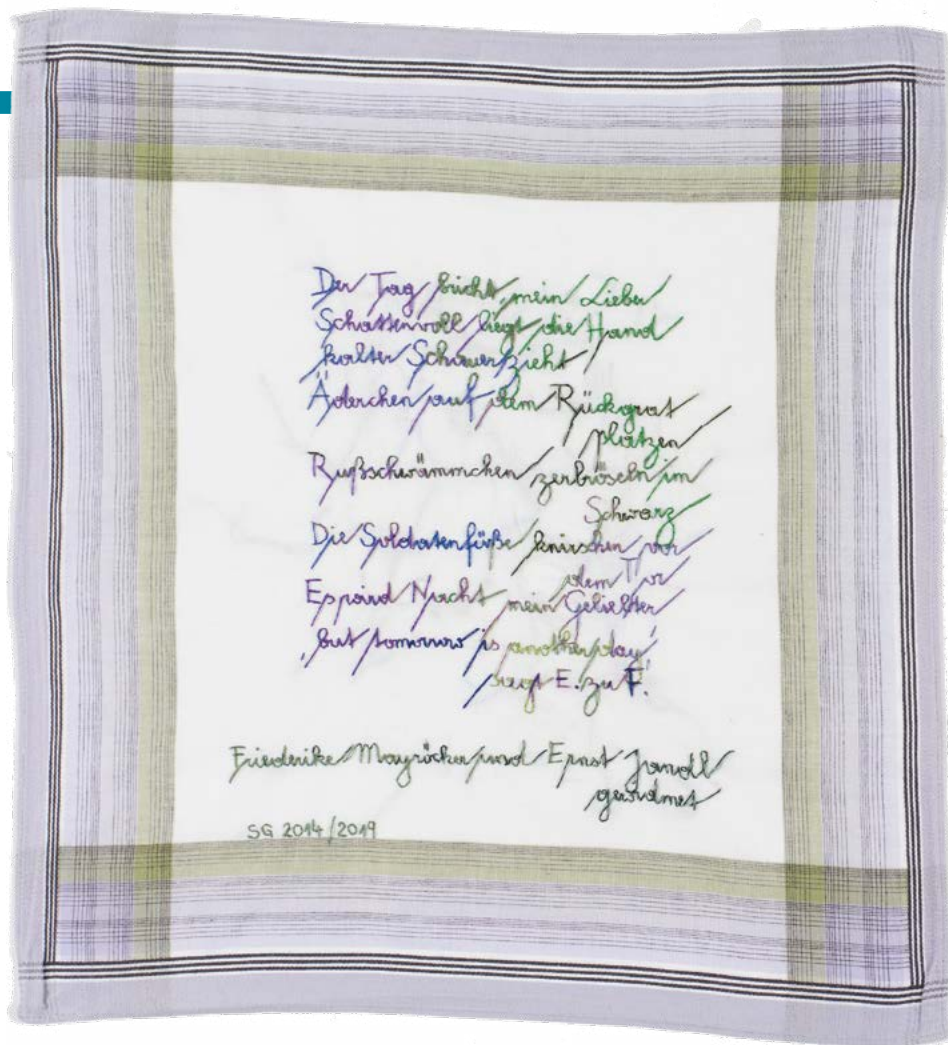 Der Tag bricht, mein Lieber
Schattenvoll liegt die Hand
kalter Schauer zieht
Äderchen auf dem Rückgrat
platzen
Rußschwämmchen zerbröseln im
Schwarz
Die Soldatenfüße knirschen vor
dem Tor
Es wird Nacht mein Geliebter
'but tomorrow is another day'
sagt E. zu F.
Friederike Mayröcker und Ernst Jandl
gewidmet
SG 2014/2019